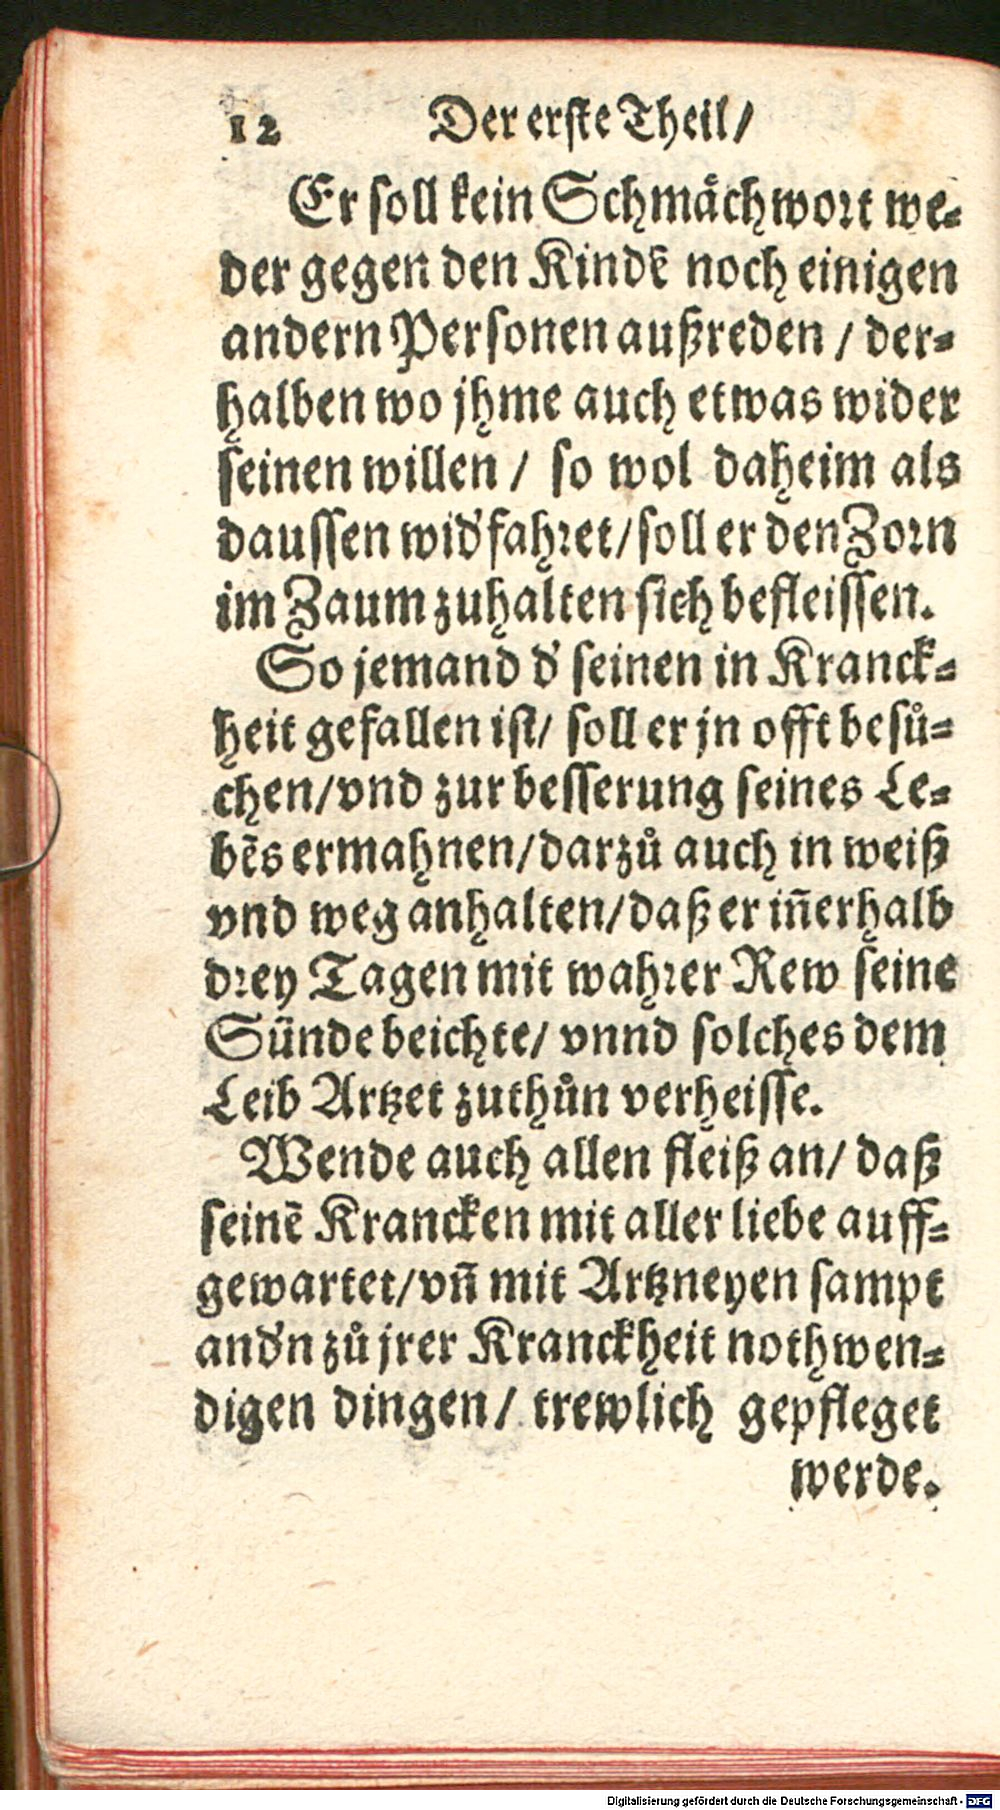 12 Der erste Theil/
Er soll kein Schmaͤchwort we-
der gegen den Kindẽ noch einigen
andern Personen außreden / der-
halben wo jhme auch etwas wider
seinen willen / so wol daheim als
daussen wid'fahret/soll er den Zorn
im Zaum zuhalten sich befleissen.
So jemand d' seinen in Kranck-
heit gefallen ist/ soll er jn offt besuͦ-
chen/vnd zur besserung seines Le-
bẽs ermahnen/darzuͦ auch in weiß
vnd weg anhalten/daß er iñerhalb
drey Tagen mit wahrer Rew seine
Sünde beichte/ vnnd solches dem
Leib Artzet zuthuͦn verheisse.
Wende auch allen fleiß an/ daß
seinẽ Krancken mit aller liebe auff-
gewartet/vñ mit Artzneyen sampt
and'n zuͦ jrer Kranckheit nothwen-
digen dingen/ trewlich gepfleget
werde.
Digitalisierung gefördert durch die Deutsche Forschungsgemeinschaft - DFG